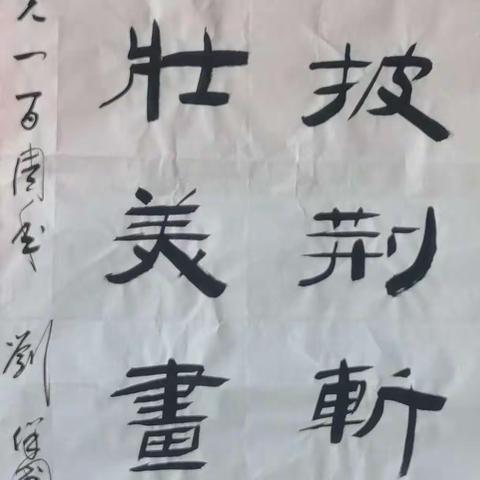 披荆斬
壯美畫
一百周年 劉